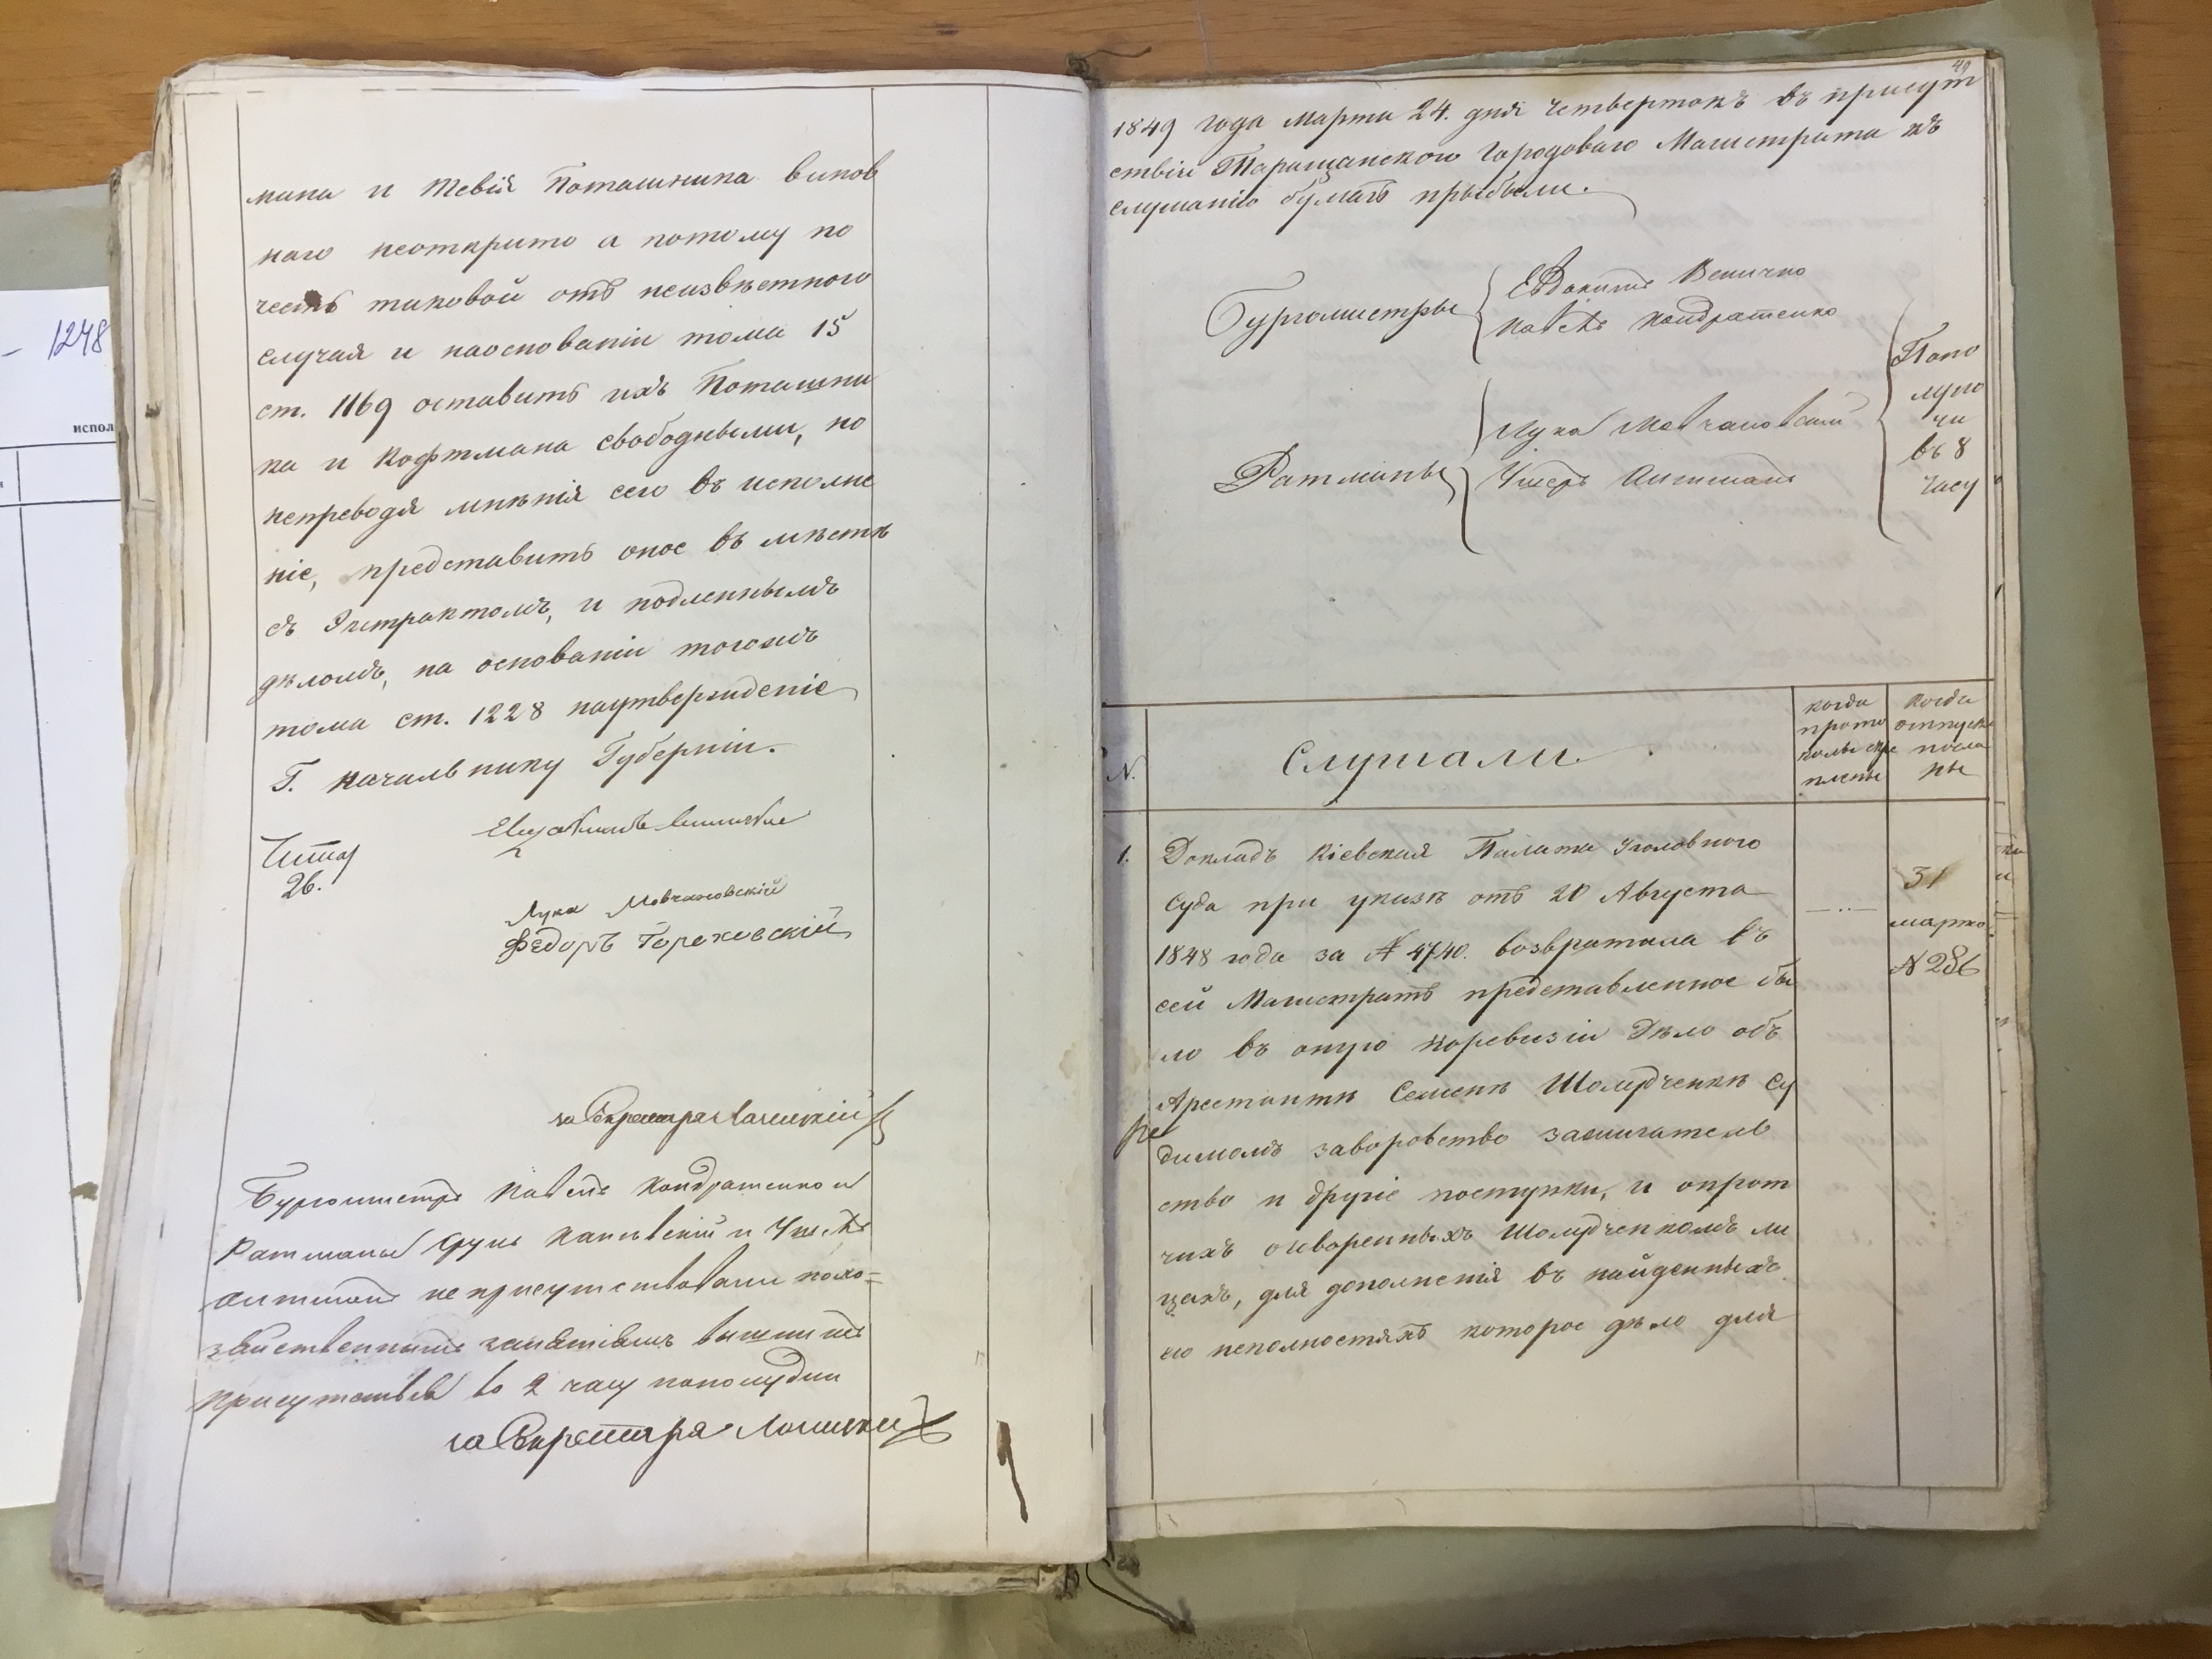 1248
испол
мана и Тевія Поташника винов
наго неоткрито а потому по
честь таковой отъ неизвѣстного
случая и наоснованіи тома 15
ст. 1169 оставить ихъ Поташни
ка и Кофтмана свободными, но
непреводя мнѣнія сего въ исполне
ніе, представить оное въ мѣстѣ
съ Экстрактомъ, и подленнымъ
дѣломъ, на основаніи тогожъ
тома ст. 1228 наутвержденіе
Г. Начальнику Губерніи.
Читал
26.
Лука Мовчановскій
Федоръ Гороховскій
за Секретаря
Бургомистръ Павелъ Кондратенко и
Ратманы
не присутствовали похо=
зяйственнымъ занятіямъ вышли изъ
присутствія во 2 часу пополудни
за Секретаря
49
1849 года Марта 24. дня четвертокъ въ присут
ствіи Таращанского Городоваго Магистрата къ
слушанію бумагъ прыбыли.
Бургомистры
Евдокимъ Величко
Павелъ Кондратенко
Ратманы
Лука Мовчановскій
Попо
луно
чи
въ 8
часу
N.
Слушали.
когда
прото
колы скре
плены
Когда
отпуски
посла
ны
1. Докладъ Кіевская Палата Уголовного
Суда при указѣ отъ 20 Августа
1848 года за N 4740. возвратила въ
сей Магистратъ представленное бы
ло въ оную норевизіи Дѣло объ
Арестантѣ Семенѣ Шолудченкѣ су
димомъ заворовство зажигатель
ство и другіе поступки, и опрот
чихъ оговоренныхъ Шолудченкомъ ли
цахъ, для дополненія въ найденныхъ
его неполностяхъ которое дѣло для
31
марта
N 286